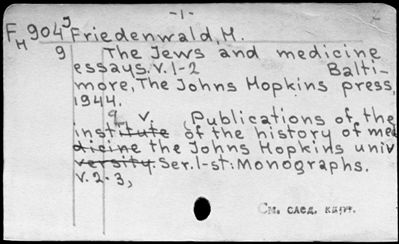 -1-
F M 904 J Friedenwald, M.
9 The Jews and medicine
essays. V. 1-2 Balti-
more, The Johns Hopkins press,
1944.
9 v. (Publications of the
institute of the history of me
dicine the Johns Hopkins univ
versity. Ser. I-st: Monographs.
V. 2-3,
См. след. карт.